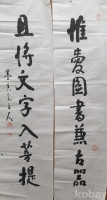 惟愛圖書兼古器
且將文字入菩提